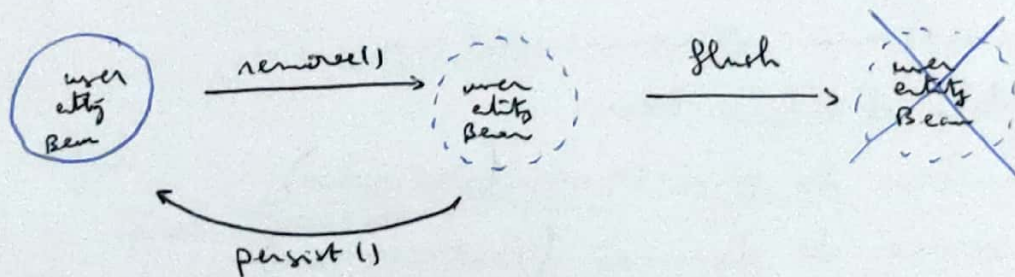 user
entity
Bean
remove()
user
entity
Bean
flush
user
entity
Bean
persist()